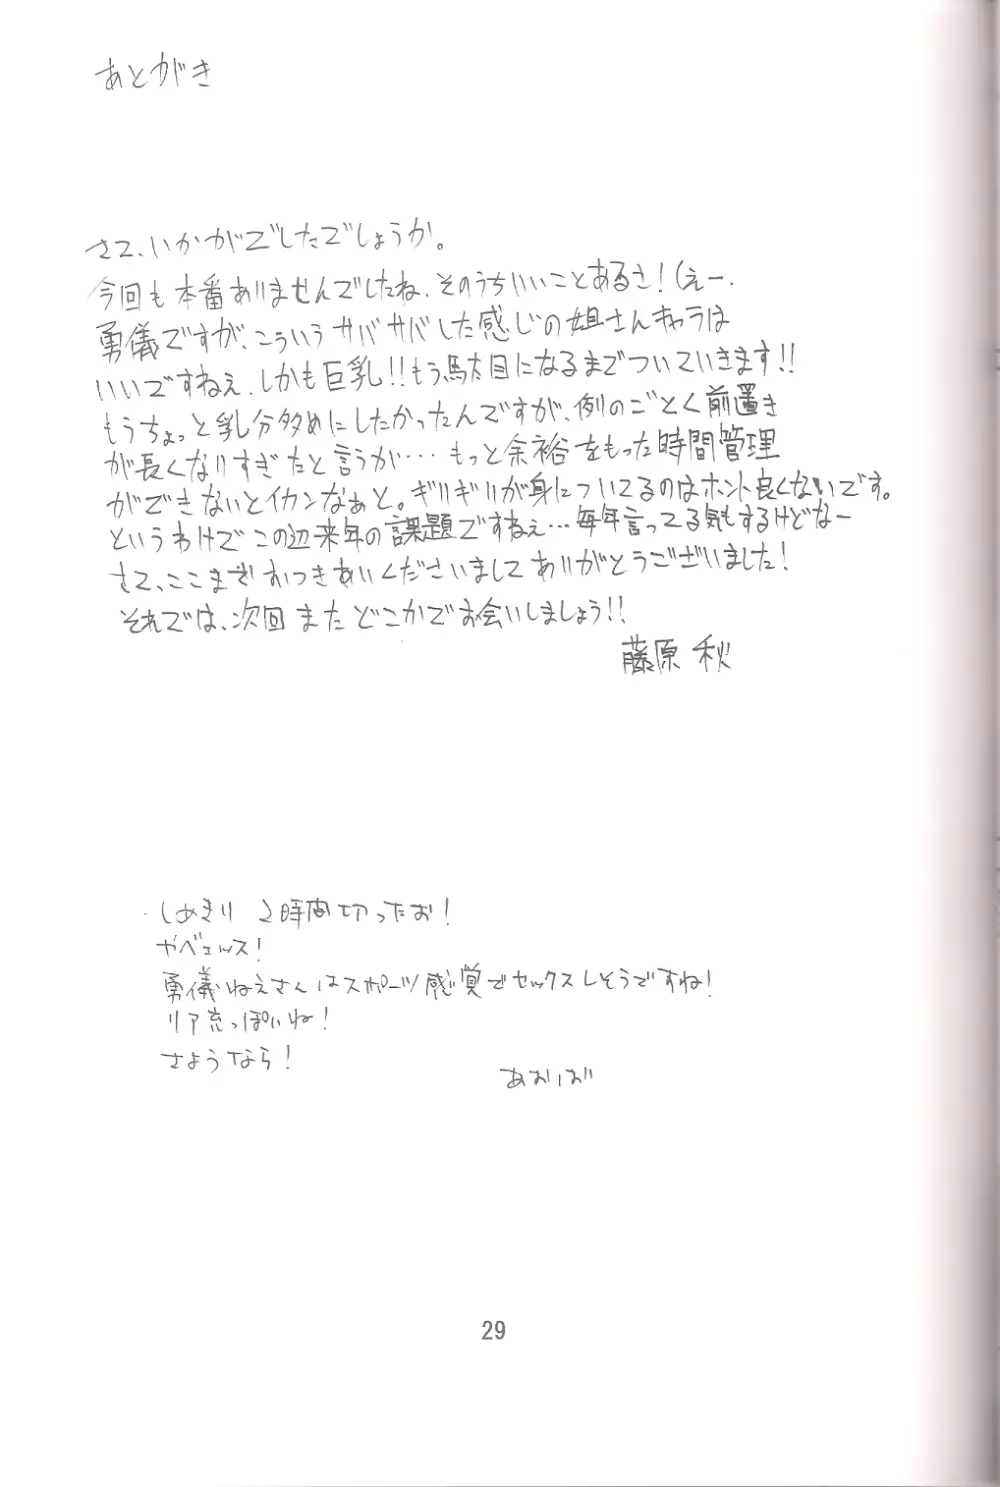 あとがき
さて、いかがでしたでしょうか。
今回も本番ありませんでしたね、そのうちいいことあるさ!(えー.
勇儀ですが、こういうサバサバした感じの姐さんキャラは
いいですねぇ、しかも巨乳!!もう駄目になるまでついていきます!!
もうちょっと乳分多めにしたかったんですが、例のごとく前置き
が長くなりすぎたと言うか…もっと余裕をもった時間管理
ができないとイカンなぁと。ギリギリが身についてるのはホント良くないです。
というわけでこの辺来年の課題ですねぇ…毎年言ってる気もするけどなー
さて、ここまでおつきあいくださいましてありがとうございました!
それでは、次回またどこかでお会いしましょう!!
藤原 秋
しめきり 2時間切ったお!
ヤベェッス!
勇儀ねえさんはスポーツ感覚でセックスしそうですね!
リア充っぽいね!
さようなら!
あおば
29